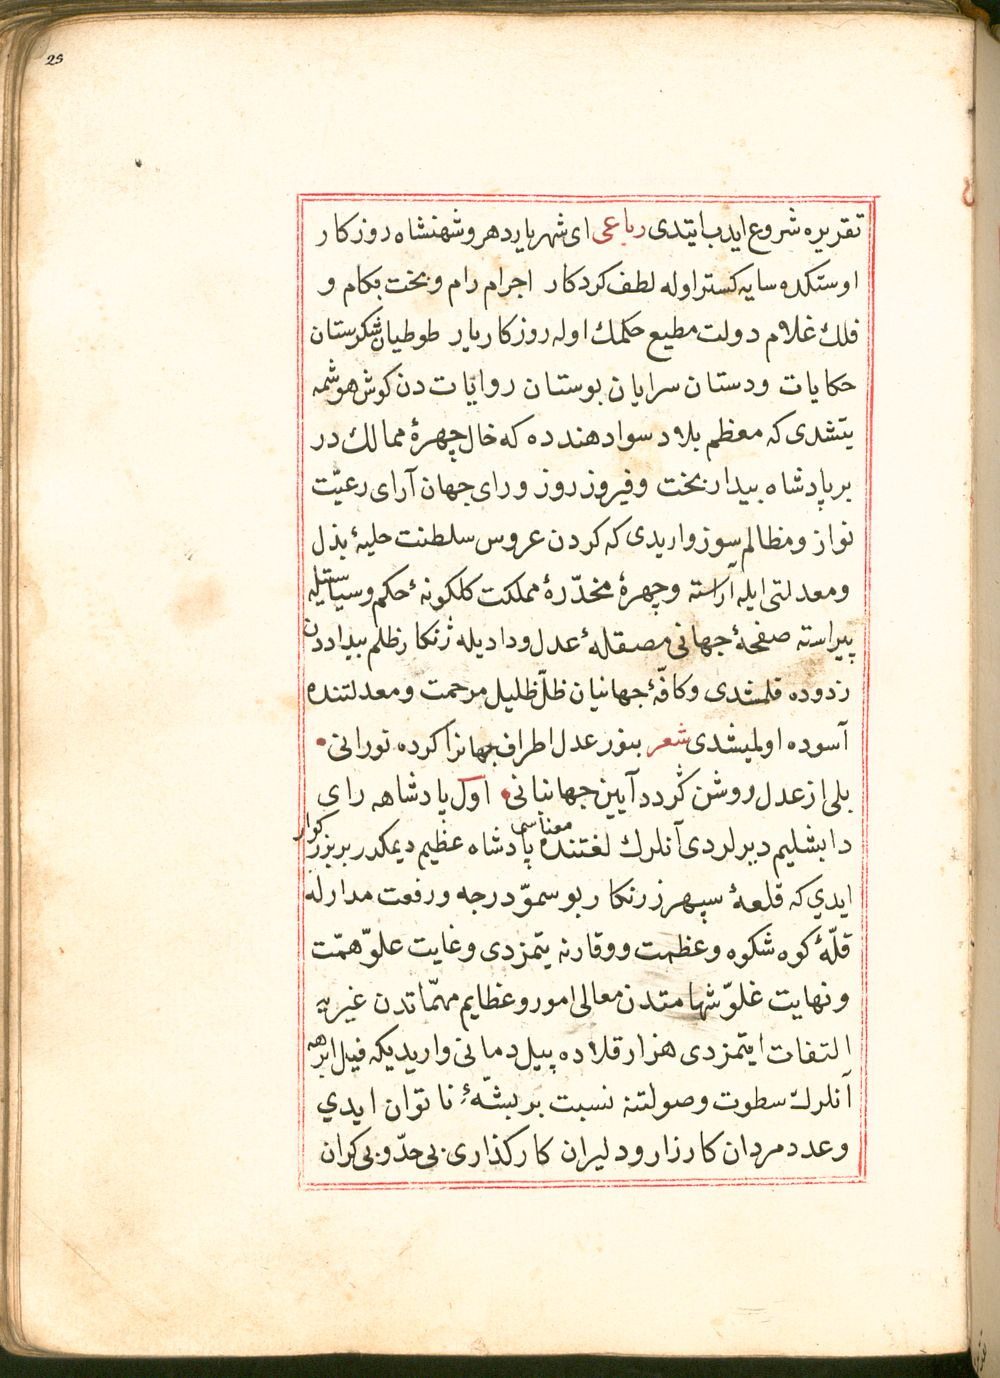 25
تقريره شروع ايدب ايتدى رباعى اى شهريار دهر و شهنشاه روزكار
اوستكده سايه كستر اوله لطف كردكار اجرام رام و بخت بكام و
فلك غلام دولت مطيع حكمك اوله روزكار يار طوطيان شكرستان
حكايات و دستان سرايان بوستان رواياتدن كوش هوشمه
يتشدى كه معظم بلاد سواد هندده كه خال چهرهٔ ممالك در
بر پادشاه بيدار بخت و فيروز روز و راى جهان آراى رعيّت
نواز و مظالم سوز واريدى كه كردن عروس سلطنت حليهٔ بذل
و معدلتى ايله آراسته و چهرهٔ مخدّرهٔ مملكت كلكونهٔ حكم و سياستيله
پيراسته صفحهٔ جهانى مصقلهٔ عدل و داديله ژنكار ظلم بيداددن
زدوده قلمشدى و كافّهٔ جهانيان ظلّ ظليل مرحمت و معدلتنده
آسوده اولمیشدى شعر بنور عدل اطراف جهانرا كرده نورانى
بلى از عدل روشن كردد آيين جهانبانى اول پادشاهه راى
دابشليم ديرلردى آنلرك لغتنده معناسى پادشاه عظيم ديمكدر بر بزركوار
ايدي كه قلعهٔ سپهر زرنكار بو سموّ درجه و رفعت مدارله
قلّهٔ كوه شكوه و عظمت و وقارنه يتمزدى و غايت علوّ همّت
و نهايت غلوّ شهامتدن معالى امور و عظايم مهمّاتدن غيريه
التفات ايتمزدى هزار قلاده پيل دمانى واريديكه فيل ابرهه
آنلرك سطوت و صولتنه نسبت بر پشّهٔ ناتوان ايدي
و عدد مردان كارزار و دليران كاركذارى بى حدّ و بى كران